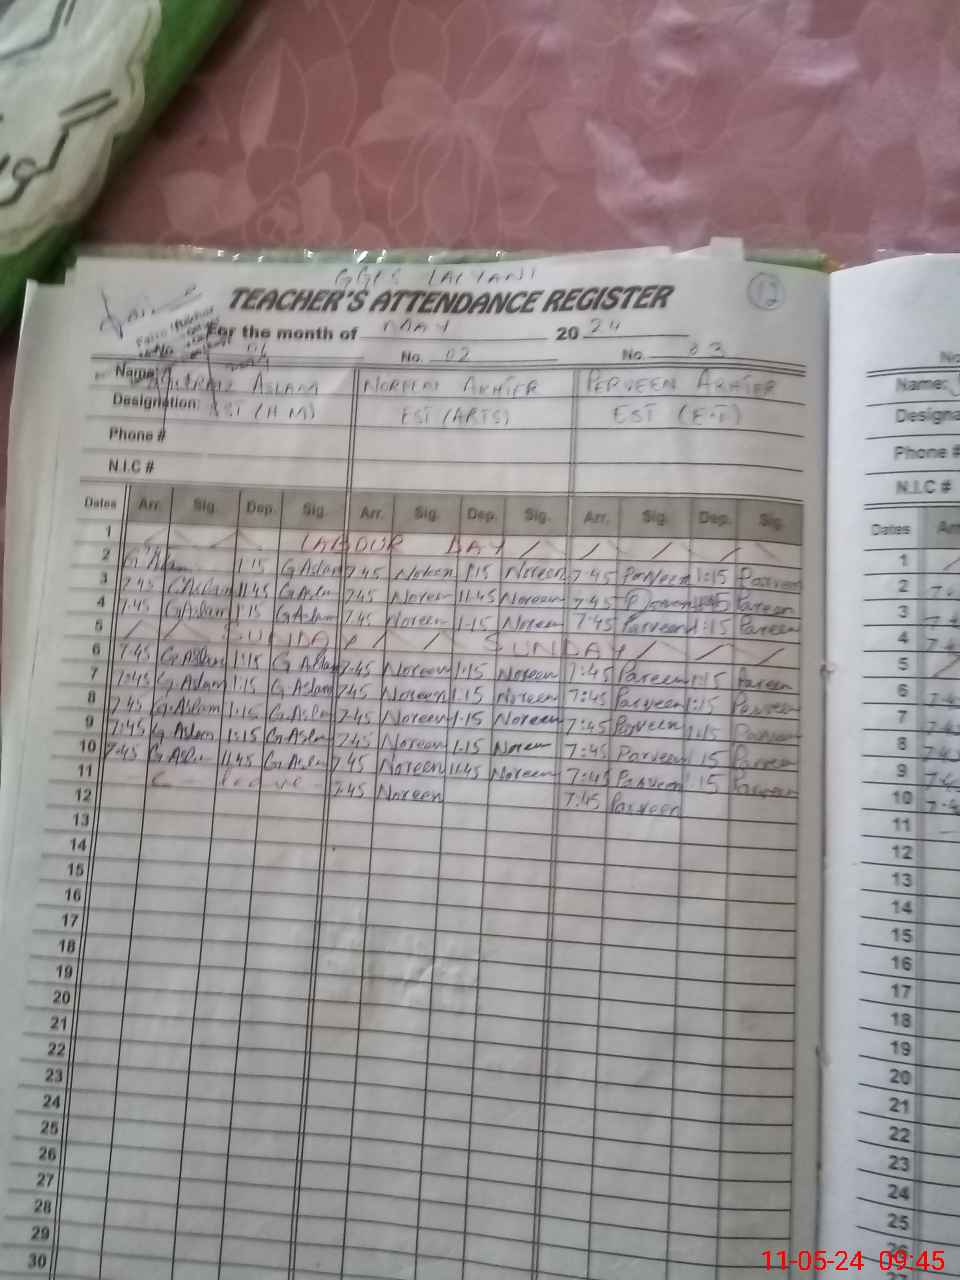 GGPS LALYANI
TEACHER'S ATTENDANCE REGISTER
12
For the month of MAY 20 24
No. 02 No. 03
Name: ASLAM NOREEN AKHTER PERVEEN AKHTER
Designation: SST (H.M) EST (ARTS) EST (E-I)
Phone #
N.I.C #
Dates Arr. Sig. Dep. Sig. Arr. Sig. Dep. Sig. Arr. Sig. Dep. Sig.
1 LABOUR DAY
2 G.Aslam 1:15 G.Aslam 7:45 Noreen 1:15 Noreen 7:45 Parveen 1:15 Parveen
3 7:45 G.Aslam 11:45 G.Aslam 7:45 Noreen 11:45 Noreen 7:45 Parveen 11:45 Parveen
4 7:45 G.Aslam 1:15 G.Aslam 7:45 Noreen 1:15 Noreen 7:45 Parveen 1:15 Parveen
5 SUNDAY SUNDAY
6 7:45 G.Aslam 1:15 G.Aslam 7:45 Noreen 1:15 Noreen 7:45 Parveen 1:15 Parveen
7 7:45 G.Aslam 1:15 G.Aslam 7:45 Noreen 1:15 Noreen 7:45 Parveen 1:15 Parveen
8 7:45 G.Aslam 1:15 G.Aslam 7:45 Noreen 1:15 Noreen 7:45 Parveen 1:15 Parveen
9 7:45 G.Aslam 1:15 G.Aslam 7:45 Noreen 1:15 Noreen 7:45 Parveen 1:15 Parveen
10 7:45 G.Aslam 11:45 G.Aslam 7:45 Noreen 11:45 Noreen 7:45 Parveen 1:15 Parveen
11 C leave 7:45 Noreen 7:45 Parveen
12
13
14
15
16
17
18
19
20
21
22
23
24
25
26
27
28
29
30
No
Name:
Designa
Phone #
N.I.C #
Dates Arr
1
2
3
4
5
6
7
8
9
10
11
12
13
14
15
16
17
18
19
20
21
22
23
24
25
26
11-05-24 09:45